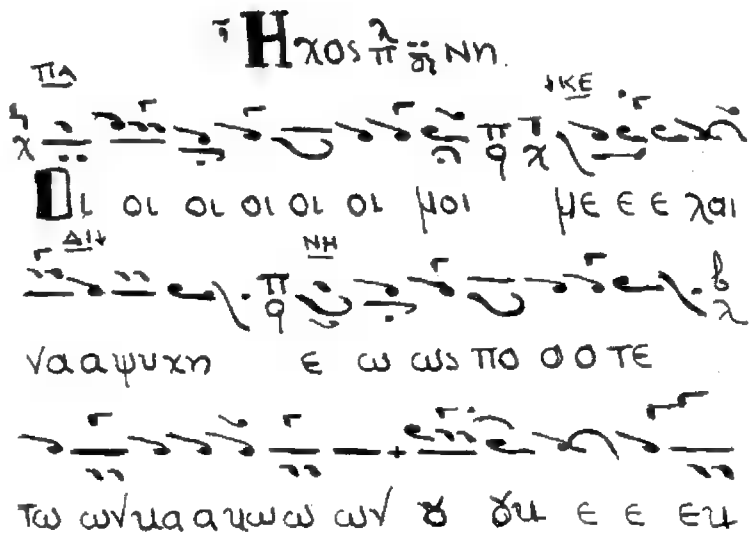 Ἦχος λ π δι Νη.
ΠΑ ΚΕ
Οι οι οι οι οι οι μοι με ε ε λαι
ΔΙ ΝΗ
να α ψυχη ε ω ως πο ο ο τε
τω ων κα α κω ω ων ȣ ȣκ ε ε εκ